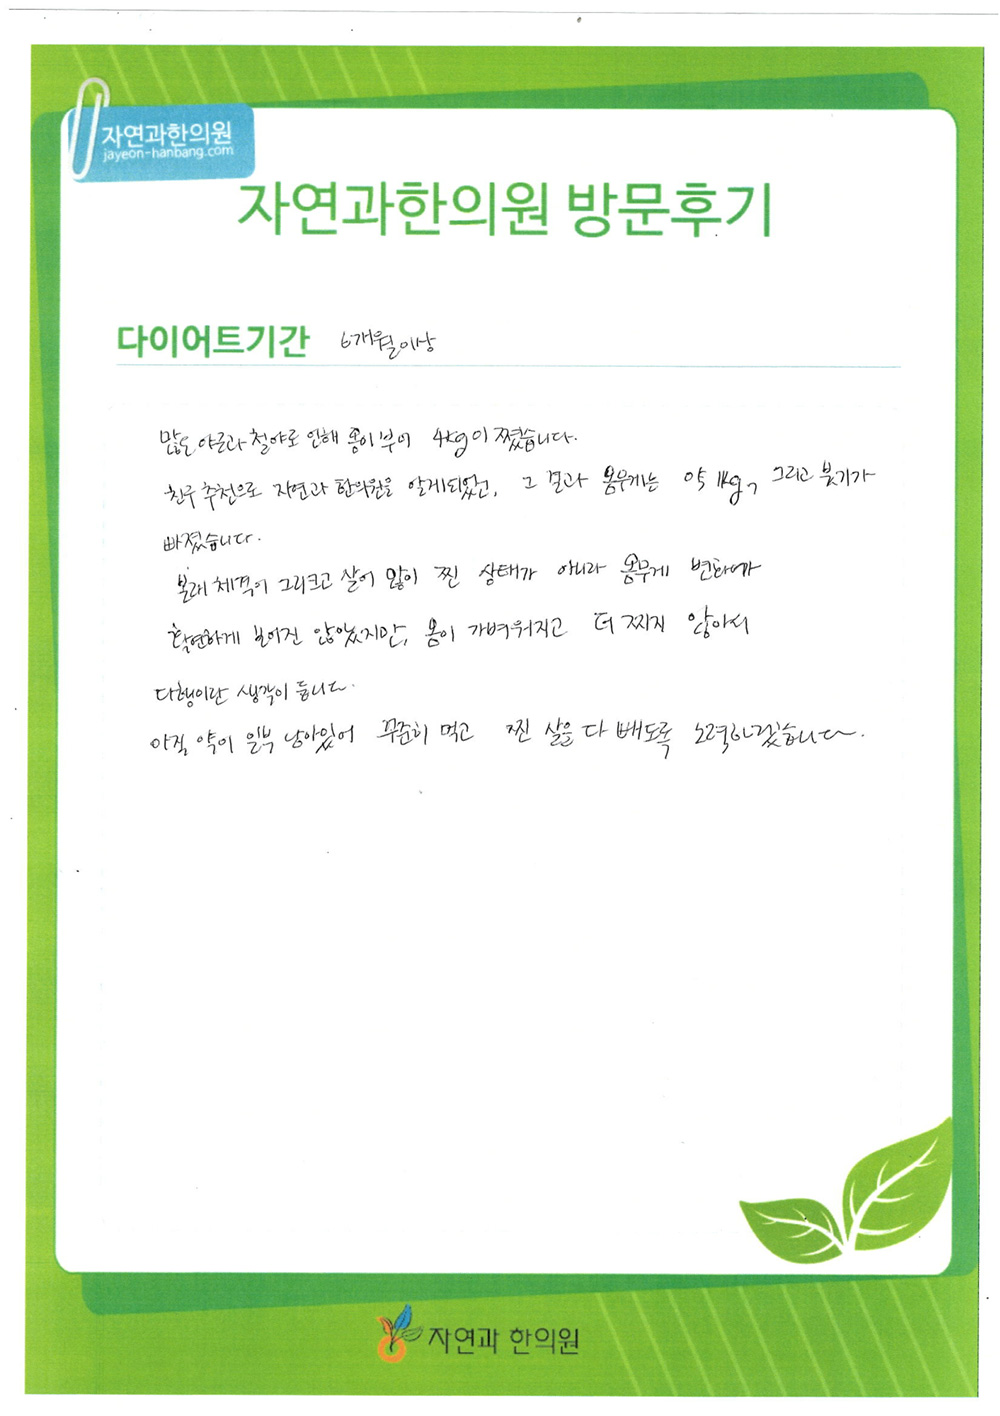 자연과한의원
jayeon-hanbang.com
자연과한의원 방문후기
다이어트기간 6개월이상
많은 야근과 철야로 인해 몸이 부어 4kg이 쪘습니다.
친구 추천으로 자연과 한의원을 알게되었고, 그 결과 몸무게는 약 1kg, 그리고 붓기가
빠졌습니다.
본래 체격이 그리크고 살이 많이 찐 상태가 아니라 몸무게 변화가
확연하게 보이진 않았지만, 몸이 가벼워지고 더 찌지 않아서
다행이란 생각이 듭니다.
아직 약이 일부 남아있어 꾸준히 먹고 찐 살을 다 빼도록 노력하겠습니다.
자연과 한의원